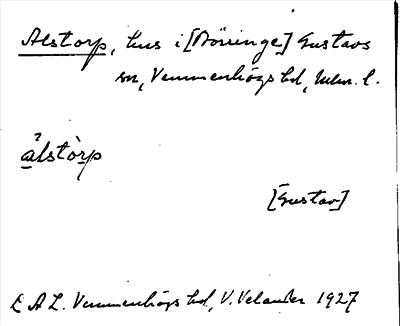 Alstorp, hus i [Börringe] Gustavs
sn, Vemmenhögs hd, Mlm. l.
a᷃lstòrp
[Gustav]
L A L. Vemmenhögs hd, V. Velander 1927